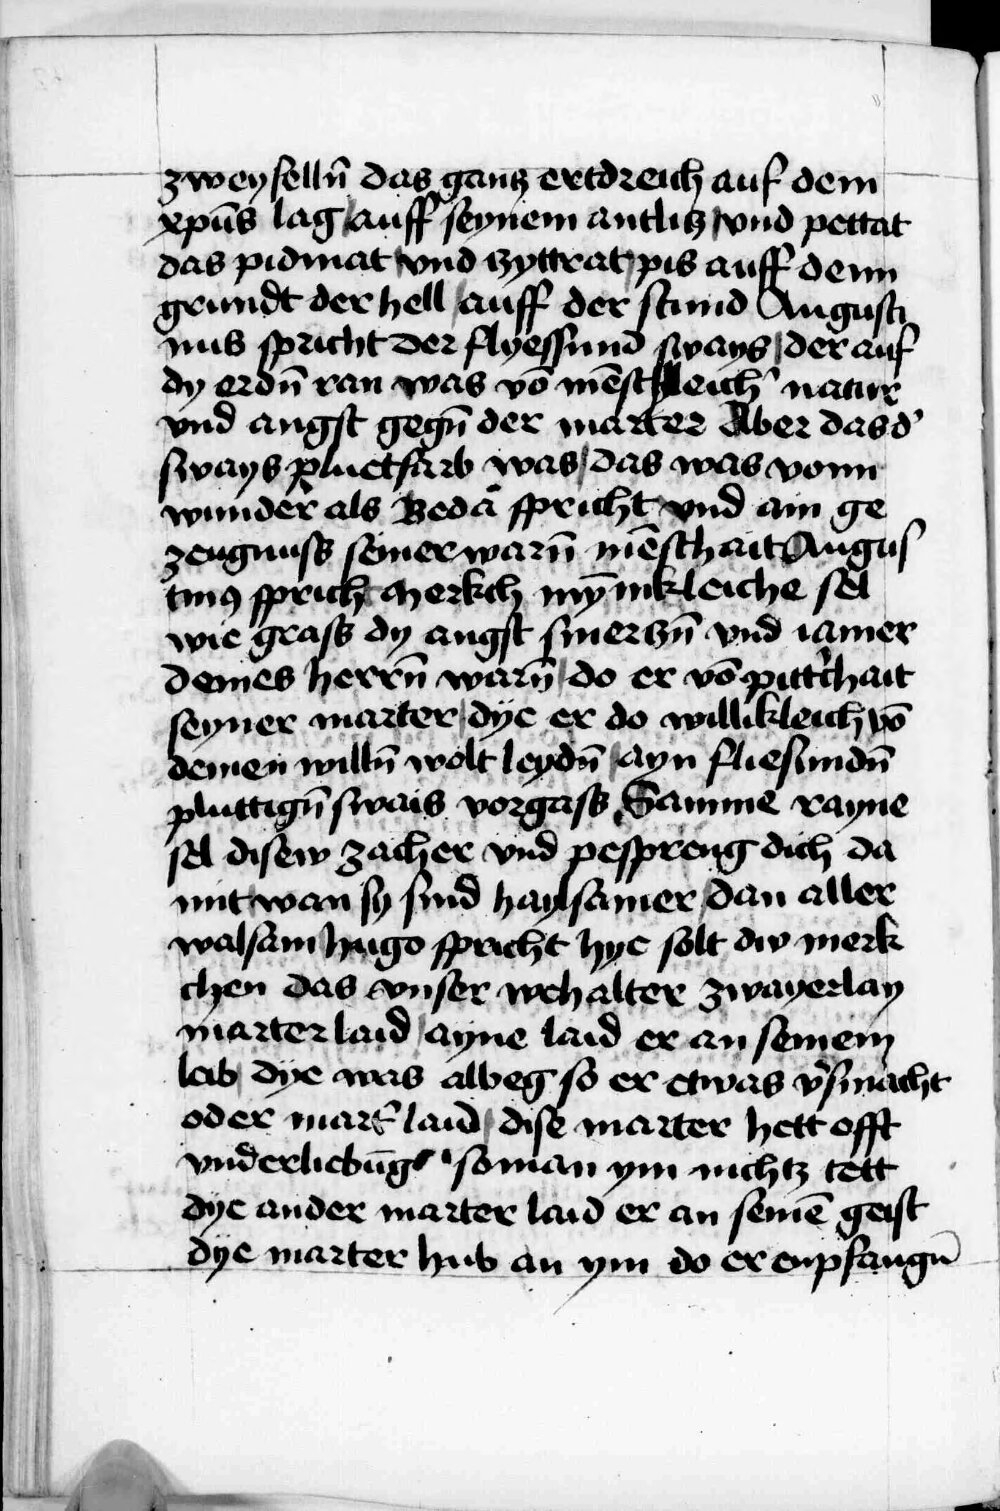 zweyfelln̄ das gantz ertdreich auf dem
xpūs lag / auff seynem antlitz / vnd pettat
das pidmat vnd tzyttrat pis auff denn
grundt der hell / auff der stund Augusti
nus spricht der flyessund sways / der auf
dy erdn̄ ran was vō mēschleich' natur
vnd angst gegn̄ der marter Aber das d'
sways pluetfarb was / das was vonn
wunder als Beda spricht vnd ain ge
zeugnuss seiner warn̄ mēschait Augus
tin9 sprich Merkch mȳnikleiche sel
wie grass dy angst smertzn̄ vnd iamer
deines herrn̄ warn̄ / do er vō pitt'chait
seyner marter / dye er do willikleich vō
deinen willn̄ wolt leydn̄ / ayn fliesundn̄
pluttign̄ swais vorgass Samme rayne
sel disew zacher vnd pespreng dich da
mit wan sy sind haylsamer / dan aller
walsam Hugo spricht hye solt dw merk
chen das vnser wehalter zwayerlay
marter laid / ayne laid er an seinem
leib / dye was albeg so er etwas v'smacht
oder mart' laid / dise marter hett offt
vnderliebūg so man ym nichtz tett
dye ander marter laid er an seinē geist
dye marter hub an ym do er enpfangn̄